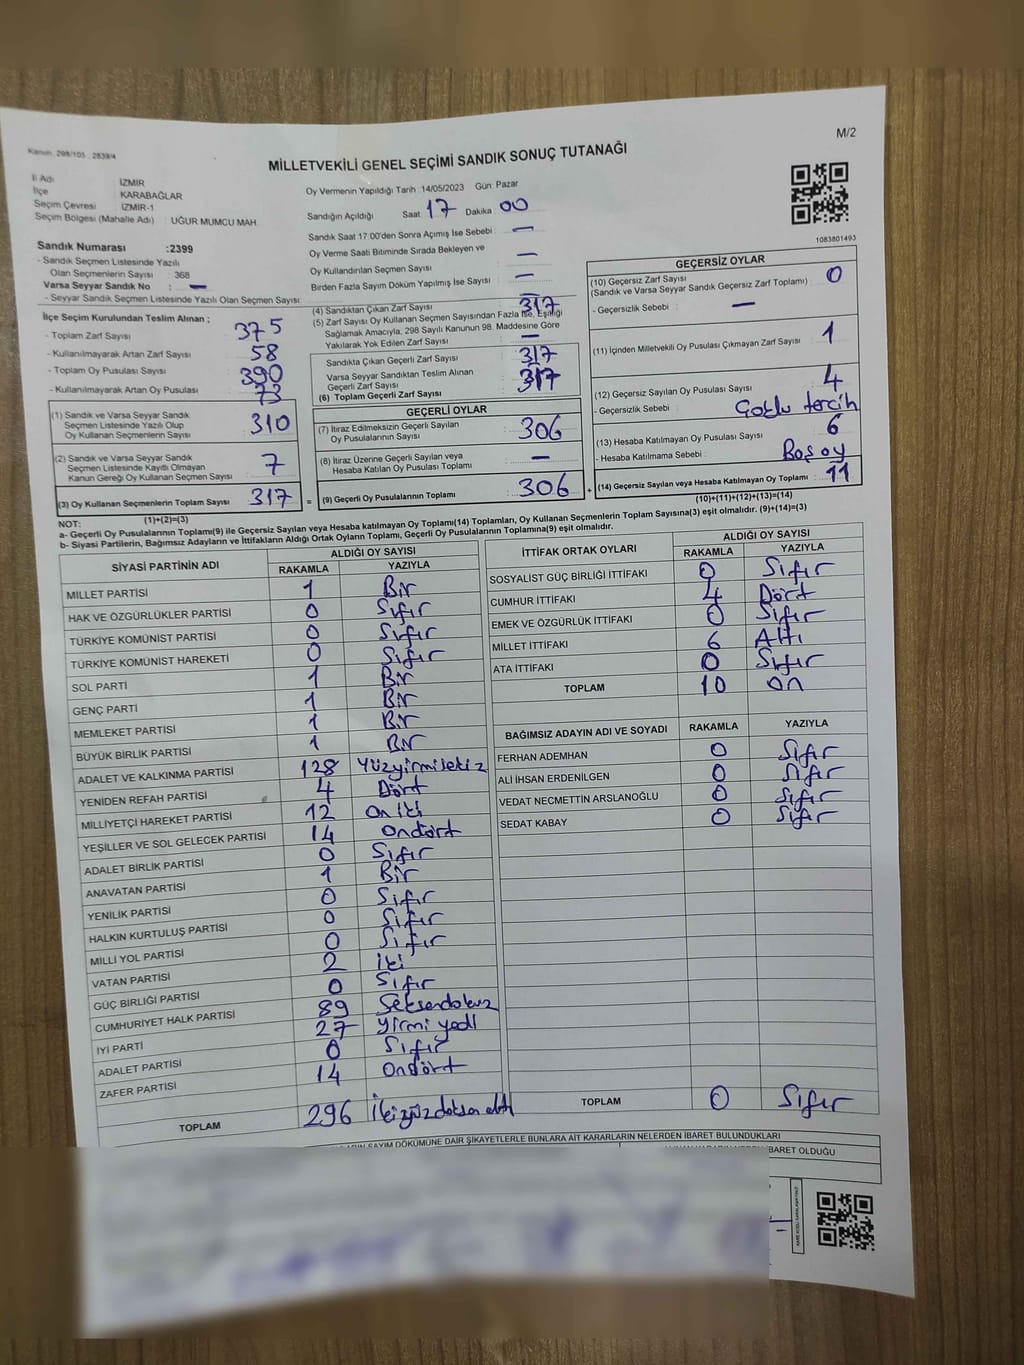 Kanun: 298/105 , 2839/4
M/2
MİLLETVEKİLİ GENEL SEÇİMİ SANDIK SONUÇ TUTANAĞI
İl Adı İZMİR
İlçe KARABAĞLAR
Seçim Çevresi İZMİR-1
Seçim Bölgesi (Mahalle Adı) : UĞUR MUMCU MAH
Sandık Numarası :2399
- Sandık Seçmen Listesinde Yazılı
Olan Seçmenlerin Sayısı : 368
Varsa Seyyar Sandık No : —
- Seyyar Sandık Seçmen Listesinde Yazılı Olan Seçmen Sayısı
Oy Vermenin Yapıldığı Tarih : 14/05/2023 Gün: Pazar
Sandığın Açıldığı Saat 17 Dakika 00
Sandık Saat 17:00'den Sonra Açılmış İse Sebebi : —
Oy Verme Saati Bitiminde Sırada Bekleyen ve
Oy Kullandırılan Seçmen Sayısı —
Birden Fazla Sayım Döküm Yapılmış İse Sayısı —
1083801493
İlçe Seçim Kurulundan Teslim Alınan ;
- Toplam Zarf Sayısı 375
- Kullanılmayarak Artan Zarf Sayısı 58
- Toplam Oy Pusulası Sayısı 390
- Kullanılmayarak Artan Oy Pusulası 73
(1) Sandık ve Varsa Seyyar Sandık
Seçmen Listesinde Yazılı Olup
Oy Kullanan Seçmenlerin Sayısı 310
(2) Sandık ve Varsa Seyyar Sandık
Seçmen Listesinde Kayıtlı Olmayan
Kanun Gereği Oy Kullanan Seçmen Sayısı 7
(3) Oy Kullanan Seçmenlerin Toplam Sayısı 317 =
(1)+(2)=(3)
(4) Sandıktan Çıkan Zarf Sayısı 317
(5) Zarf Sayısı Oy Kullanan Seçmen Sayısından Fazla İse, Eşitliği
Sağlamak Amacıyla, 298 Sayılı Kanunun 98. Maddesine Göre
Yakılarak Yok Edilen Zarf Sayısı : —
Sandıkta Çıkan Geçerli Zarf Sayısı 317
Varsa Seyyar Sandıktan Teslim Alınan
Geçerli Zarf Sayısı
(6) Toplam Geçerli Zarf Sayısı 317
GEÇERLİ OYLAR
(7) İtiraz Edilmeksizin Geçerli Sayılan
Oy Pusulalarının Sayısı 306
(8) İtiraz Üzerine Geçerli Sayılan veya
Hesaba Katılan Oy Pusulası Toplamı —
(9) Geçerli Oy Pusulalarının Toplamı 306 +
GEÇERSİZ OYLAR
(10) Geçersiz Zarf Sayısı
(Sandık ve Varsa Seyyar Sandık Geçersiz Zarf Toplamı) : 0
- Geçersizlik Sebebi : —
(11) İçinden Milletvekili Oy Pusulası Çıkmayan Zarf Sayısı 1
(12) Geçersiz Sayılan Oy Pusulası Sayısı 4
- Geçersizlik Sebebi : Çoklu tercih
(13) Hesaba Katılmayan Oy Pusulası Sayısı 6
- Hesaba Katılmama Sebebi : Boş oy
(14) Geçersiz Sayılan veya Hesaba Katılmayan Oy Toplamı 11
(10)+(11)+(12)+(13)=(14)
NOT:
a- Geçerli Oy Pusulalarının Toplamı(9) ile Geçersiz Sayılan veya Hesaba katılmayan Oy Toplamı(14) Toplamları, Oy Kullanan Seçmenlerin Toplam Sayısına(3) eşit olmalıdır. (9)+(14)=(3)
b- Siyasi Partilerin, Bağımsız Adayların ve İttifakların Aldığı Ortak Oyların Toplamı, Geçerli Oy Pusulalarının Toplamına(9) eşit olmalıdır.
SİYASİ PARTİNİN ADI ALDIĞI OY SAYISI
RAKAMLA YAZIYLA
MİLLET PARTİSİ 1 Bir
HAK VE ÖZGÜRLÜKLER PARTİSİ 0 Sıfır
TÜRKİYE KOMÜNİST PARTİSİ 0 Sıfır
TÜRKİYE KOMÜNİST HAREKETİ 0 Sıfır
SOL PARTİ 1 Bir
GENÇ PARTİ 1 Bir
MEMLEKET PARTİSİ 1 Bir
BÜYÜK BİRLİK PARTİSİ 1 Bir
ADALET VE KALKINMA PARTİSİ 128 Yüzyirmisekiz
YENİDEN REFAH PARTİSİ 4 Dört
MİLLİYETÇİ HAREKET PARTİSİ 12 On iki
YEŞİLLER VE SOL GELECEK PARTİSİ 14 Ondört
ADALET BİRLİK PARTİSİ 0 Sıfır
ANAVATAN PARTİSİ 1 Bir
YENİLİK PARTİSİ 0 Sıfır
HALKIN KURTULUŞ PARTİSİ 0 Sıfır
MİLLİ YOL PARTİSİ 0 Sıfır
VATAN PARTİSİ 2 iki
GÜÇ BİRLİĞİ PARTİSİ 0 Sıfır
CUMHURİYET HALK PARTİSİ 89 Seksendokuz
İYİ PARTİ 27 Yirmi yedi
ADALET PARTİSİ 0 Sıfır
ZAFER PARTİSİ 14 Ondört
TOPLAM 296 İkiyüzdoksan altı
İTTİFAK ORTAK OYLARI ALDIĞI OY SAYISI
RAKAMLA YAZIYLA
SOSYALİST GÜÇ BİRLİĞİ İTTİFAKI 0 Sıfır
CUMHUR İTTİFAKI 4 Dört
EMEK VE ÖZGÜRLÜK İTTİFAKI 0 Sıfır
MİLLET İTTİFAKI 6 Altı
ATA İTTİFAKI 0 Sıfır
TOPLAM 10 On
BAĞIMSIZ ADAYIN ADI VE SOYADI RAKAMLA YAZIYLA
FERHAN ADEMHAN 0 Sıfır
ALİ İHSAN ERDENİLGEN 0 Sıfır
VEDAT NECMETTİN ARSLANOĞLU 0 Sıfır
SEDAT KABAY 0 Sıfır
TOPLAM 0 Sıfır
SAYIM DÖKÜMÜNE DAİR ŞİKAYETLERLE BUNLARA AİT KARARLARIN NELERDEN İBARET BULUNDUKLARI
İBARET OLDUĞU